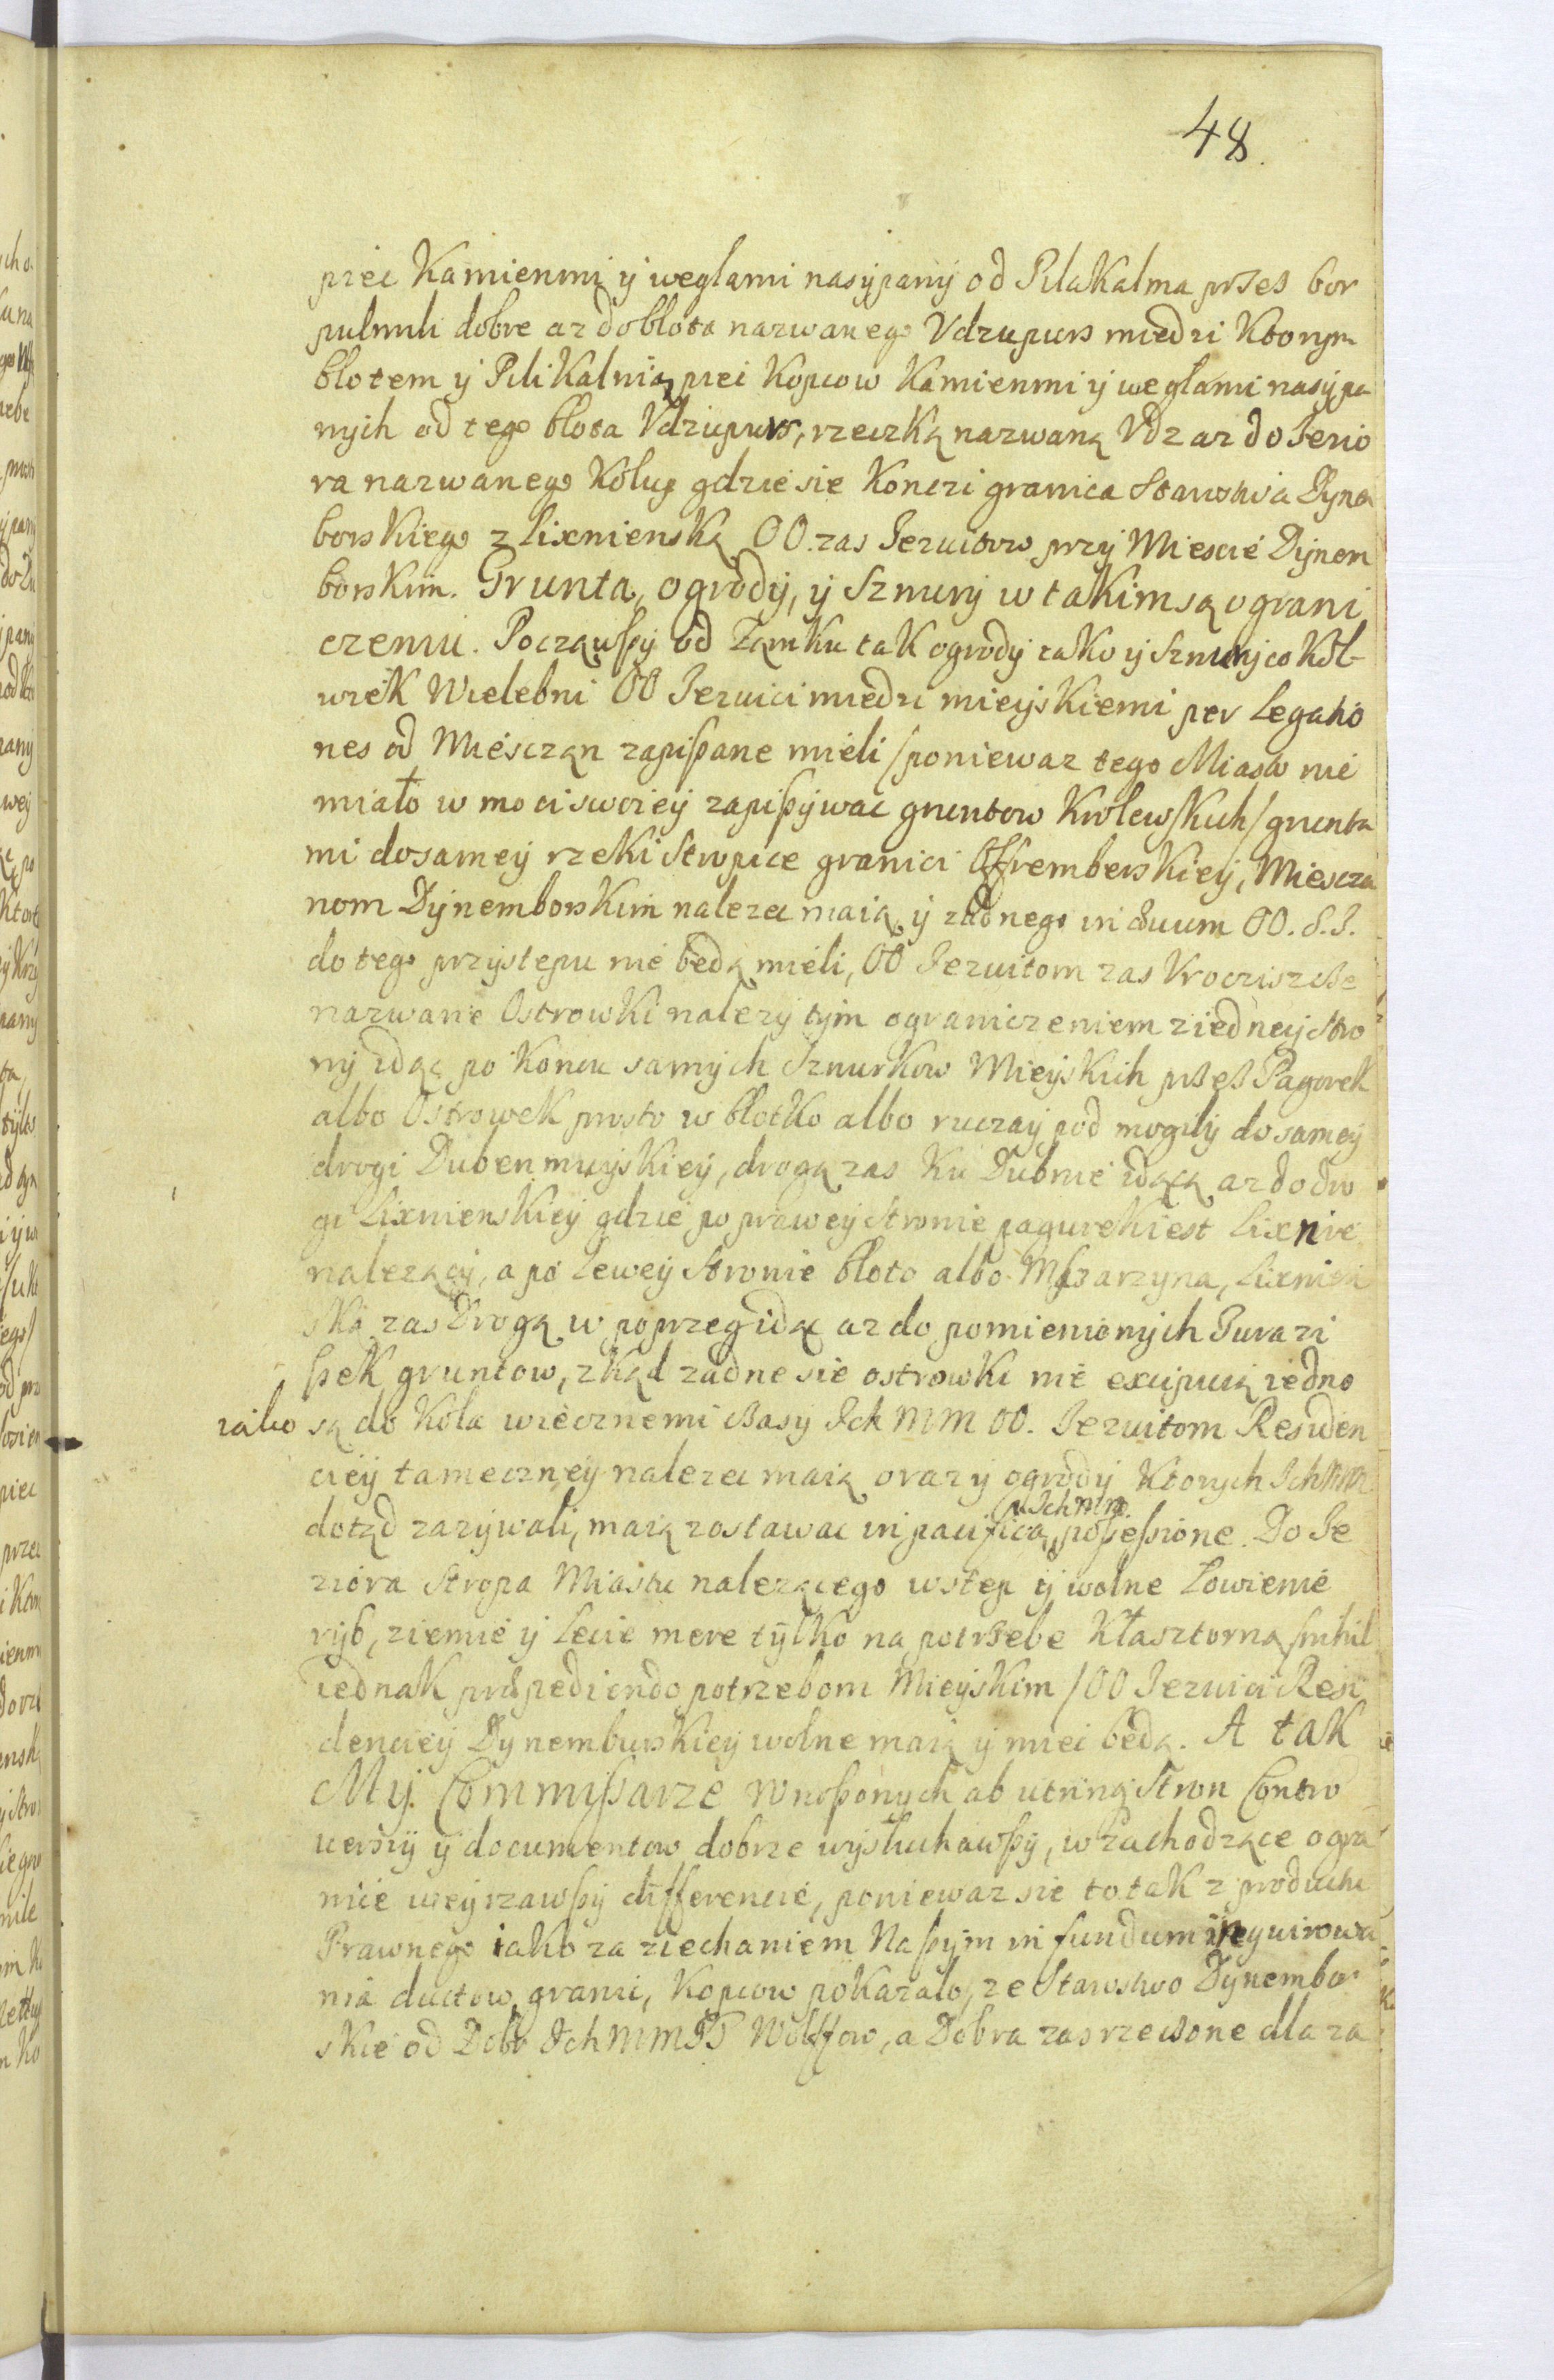 48.
piec Kamienmi ÿ weglami nasÿpanÿ od PilaKalma przes bor
pulmili dobre az do blota nazwanego Vdzupurs miedzi Ktorym
blotem ÿ PiliKalnią piec Kopcow Kamienmi ÿ weglami nasÿpa
nÿch od tego blota Vdziupurs, rzeczką nazwaną Vdz az do Jezio
ra nazwanego Kolup gdzie sie Konczi granica Starostwa Dyne
borskiego z Lixnienską OO. zas Jezuitow przÿ Miescie Dÿnem
borskim. Grunta, ogrodÿ, ÿ Sznurÿ w takim są ograni
czeniu. Poczawszÿ od Zamku tak ogrodÿ iako ÿ Sznurÿ co Kol-
wiek Wielebni OO Jezuici miedzi mieÿskiemi per Legatio
nes od Miesczan zapisane mieli /poniewaz tego Miasto nie
miało w moci swoieÿ zapisÿwac gruntow Krolewskich/ grunta
mi do sameÿ rzeki Stropice granici Offremberskieÿ, Miescza
nom Dÿnemborskim nalezec maią ÿ zadnego in ævum OO. S. J.
do tego przÿstepu nie bedą mieli, OO Jezuitom zas Vrocziszcze
nazwane Ostrowki nalezÿ tÿm ograniczeniem z iedneÿ stro
nÿ idąc po Koncu samÿch Sznurkow Mieÿskich przes Pagorek
albo Ostrowek prosto w błotko albo ruczaÿ pod mogilÿ do sameÿ
drogi Dubenmuÿskieÿ, drogą zas Ku Dubnie idącą az do dro
gi Lixnienskieÿ gdzie po praweÿ stronie pagurek iest Lixnie
nalezącÿ, a po Leweÿ Stronie błoto albo Mszarzyna, Lixnien
ską zas Drogą w poprzeg idąc az do pomienionÿch Jurazi
szek gruntow, zkąd zadne sie ostrowki nie excipuią iedno
iako są do Kola wiecznemi czasÿ Ich MM OO. Jezuitom Residen
cÿeÿ tameczneÿ nalezec maią oraz ÿ ogrodÿ Ktorÿch Ich MM
dotąd zazÿwali, maią zostawac in pacifica u Ich MM. possessione. Do Je
ziora Stropa Miastu nalezącego wstep ÿ wolne Lowienie
rÿb, ziemie ÿ Lecie mere tÿlko na potrzebe Kłasztorną /nihil
iednak præpediendo potrzebom Mieÿskim / OO Jezuici Resi
denciеÿ Dynemburskieÿ wolne maią ÿ miec bedą. A tak
Mÿ Commissarze wnoszonÿch ab utrinq Stron Contro
versÿi ÿ documentow dobrze wÿsluchawszÿ, w zachodzące ogra
nicе weÿrzawszÿ differencie, poniewaz sie to tak z produktu
Prawnego iako za ziechaniem Naszÿm in fundum inquirowa
nia ductow, granic, Kopcow pokazalo, ze Starostwo Dynembor
skie od Dobr Ich MM PP Wolffow, a Dobra zas rzeczone dla za